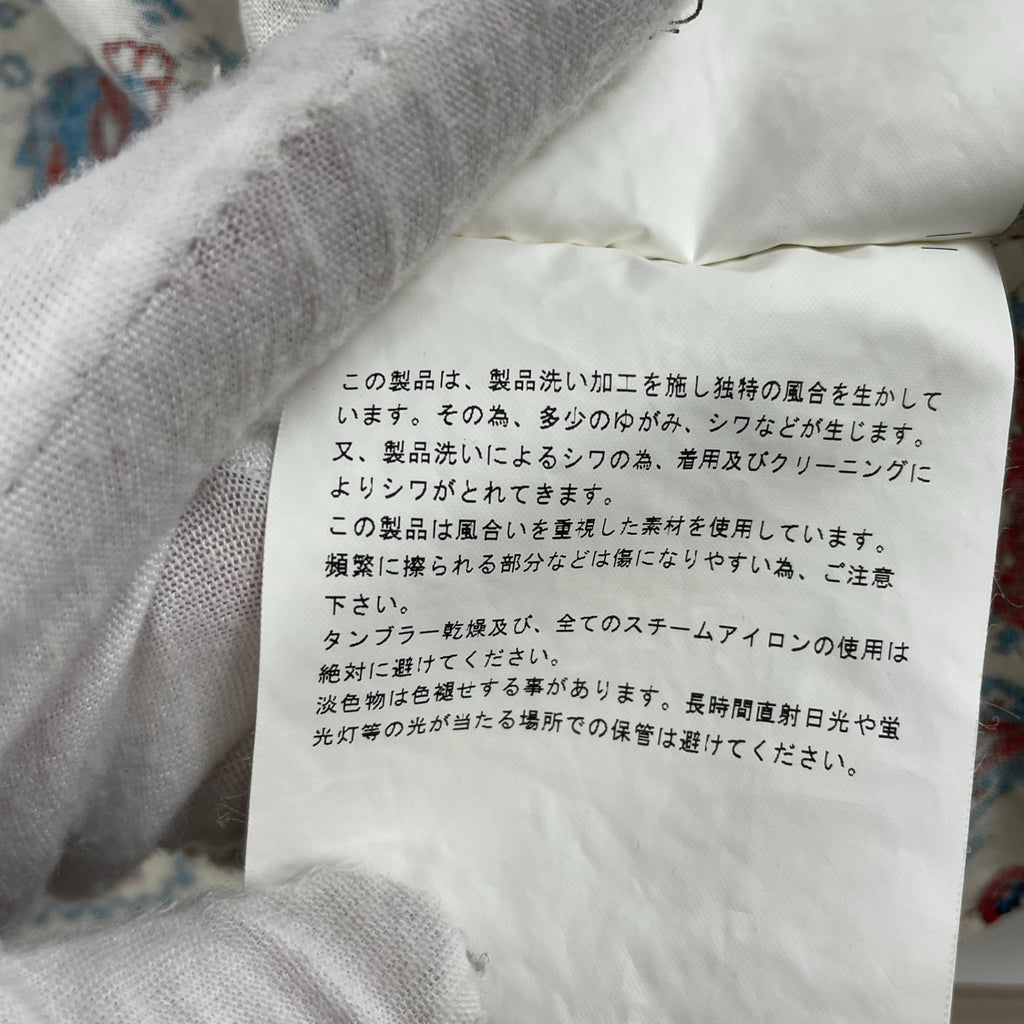 この製品は、製品洗い加工を施し独特の風合を生かして
います。その為、多少のゆがみ、シワなどが生じます。
又、製品洗いによるシワの為、着用及びクリーニングに
よりシワがとれてきます。
この製品は風合いを重視した素材を使用しています。
頻繁に擦られる部分などは傷になりやすい為、ご注意
下さい。
タンブラー乾燥及び、全てのスチームアイロンの使用は
絶対に避けてください。
淡色物は色褪せする事があります。長時間直射日光や蛍
光灯等の光が当たる場所での保管は避けてください。